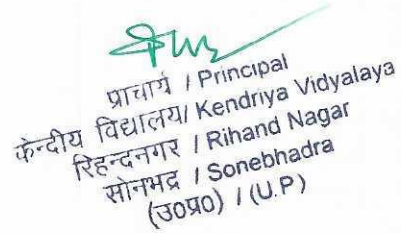 प्राचार्य / Principal
केन्द्रीय विद्यालय/ Kendriya Vidyalaya
रिहन्दनगर / Rihand Nagar
सोनभद्र / Sonebhadra
(उ०प्र०) / (U.P)